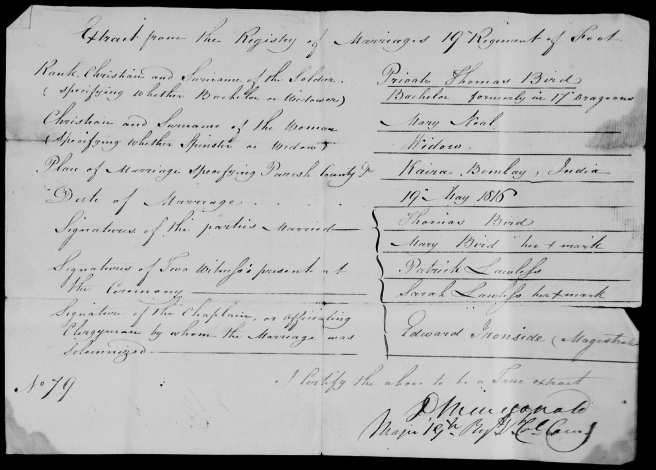 Extract from the Registry of Marriages 19th Regiment of Foot
Rank, Christian and Surname of the Soldier. Private Thomas Bird
(Specifying whether Bachelor or Widower) Bachelor formerly in 17th Dragoons
Christian and Surname of the Woman Mary Neal
(Specifying whether Spinster or Widow) Widow
Place of Marriage Specifying Parish County &c Kaira Bombay, India
Date of Marriage . . . . . 19th May 1816
Signatures of the parties Married Thomas Bird
Mary Bird her x mark
Signatures of Two Witness's present at Patrick Lawless
the Ceremony Sarah Lawless her x mark
Signature of the Chaplain, or officiating
Clergyman by whom the Marriage was Edward Ironside (Magistrate
Solemnized
No 79
I Certify the above to be a True extract
Major 19th Regt